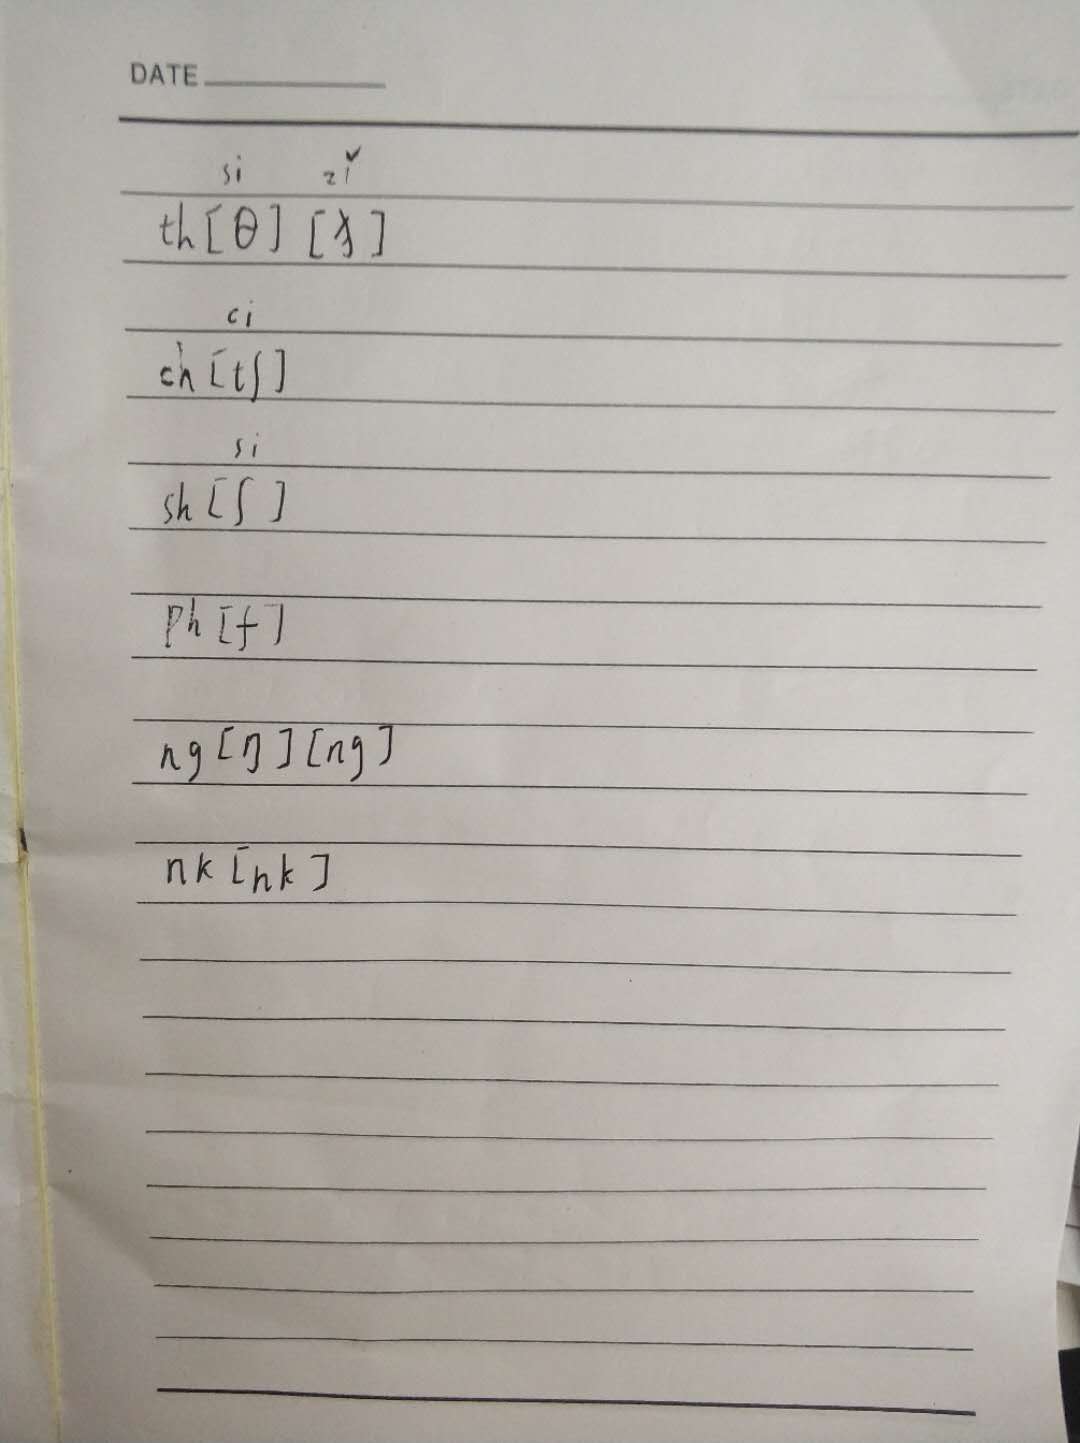 DATE
si zǐ
th [θ] [ð]
ci
ch [tʃ]
si
sh [ʃ]
ph [f]
ng [ŋ] [ng]
nk [nk]